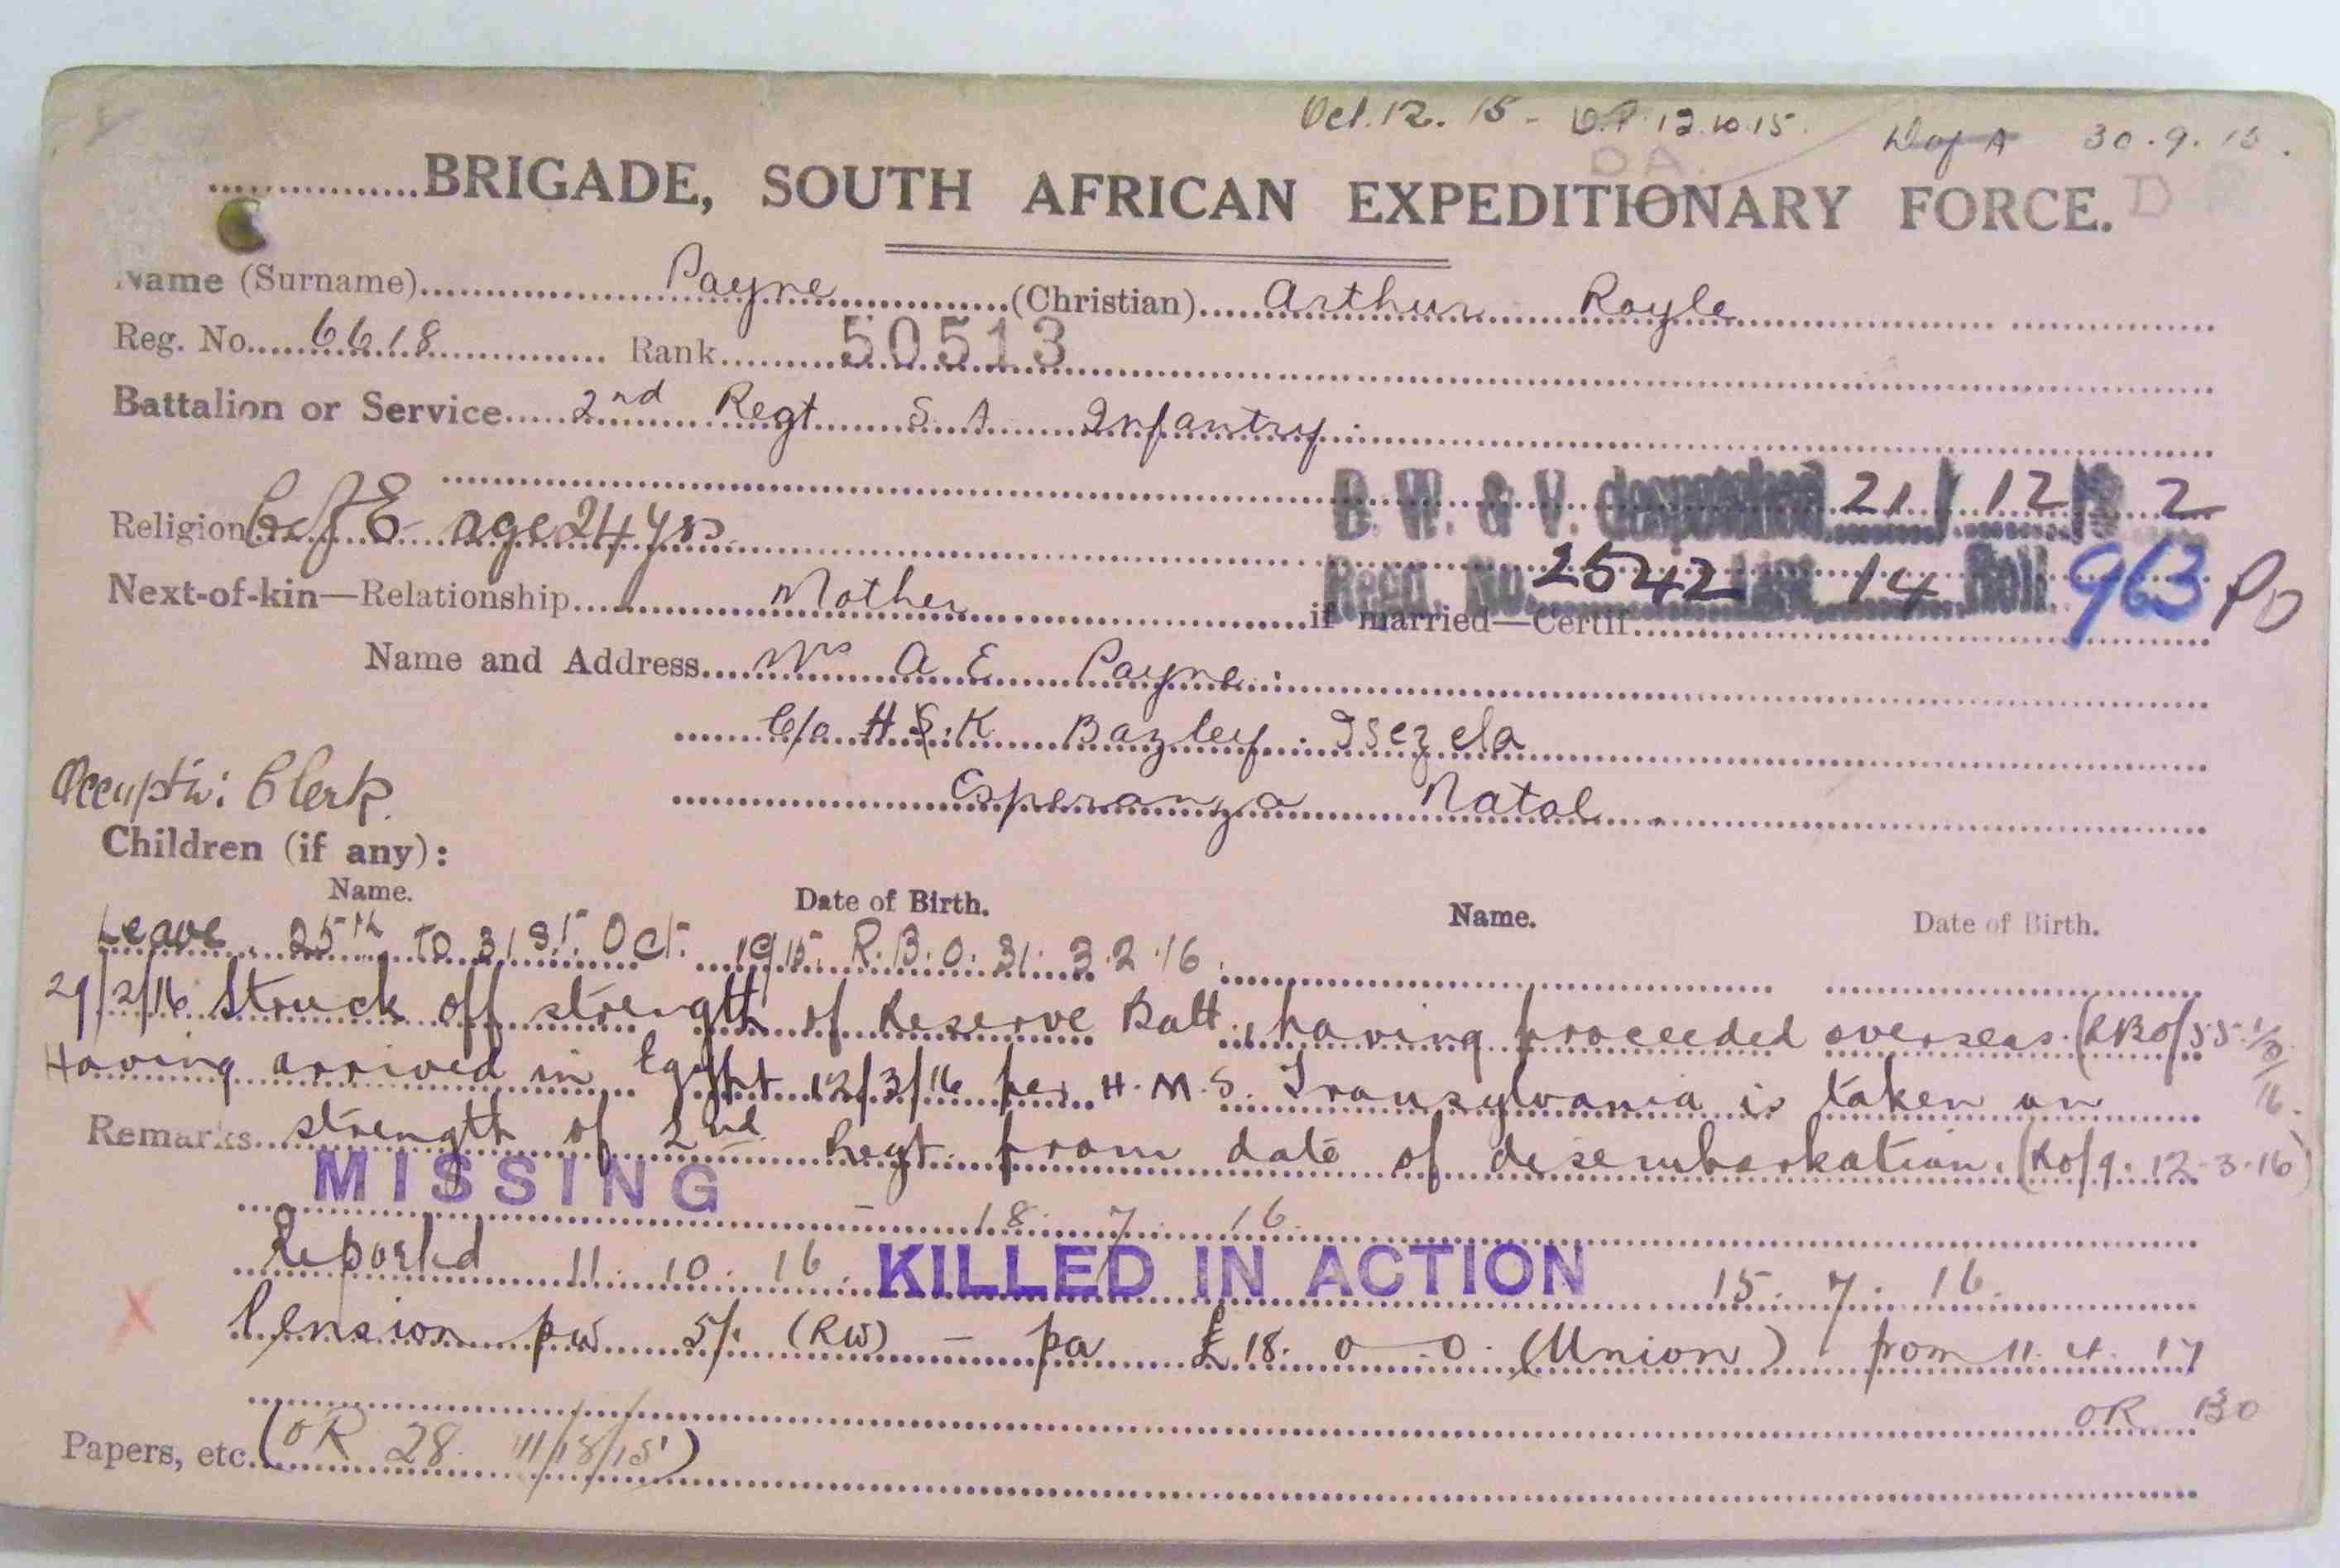 Oct. 12. 15 - D.P. 12.10.15. D of A 30.9.15.
D.A.
BRIGADE, SOUTH AFRICAN EXPEDITIONARY FORCE. D
Name (Surname) Payne (Christian) Arthur Royle
Reg. No. 6618 Rank 50513
Battalion or Service 2nd Regt S A Infantry.
B. W. & V. despatched 21/12/ 2
Religion C of E age 24 yrs
Regn. No. 2542 List 14 Roll 963 PO
Next-of-kin—Relationship Mother if married—Certif.
Name and Address Mrs A E Payne.
C/o H.S.K Bazley. Isezela
Esperanza Natal.
Occuptn: Clerk.
Children (if any):
Name. Date of Birth. Name. Date of Birth.
Leave. 25th TO 31st Oct. 1915. R.B.O. 31. 3.2.16.
29/2/16 Struck off strength of Reserve Batt., having proceeded overseas. (RBO/55. 1/3/16.
Having arrived in Egypt 12/3/16 per H.M.S. Transylvania is taken on
Remarks strength of 2nd Regt. from date of disembarkation. (Ro/9. 12-3-16)
MISSING - 18. 7. 16.
Reported 11. 10. 16. KILLED IN ACTION 15. 7. 16.
X
Pension pw 5/. (RW) - pa £18. 0-0. (Union) from 11. 4. 17
OR BO
Papers, etc. (OR 28.